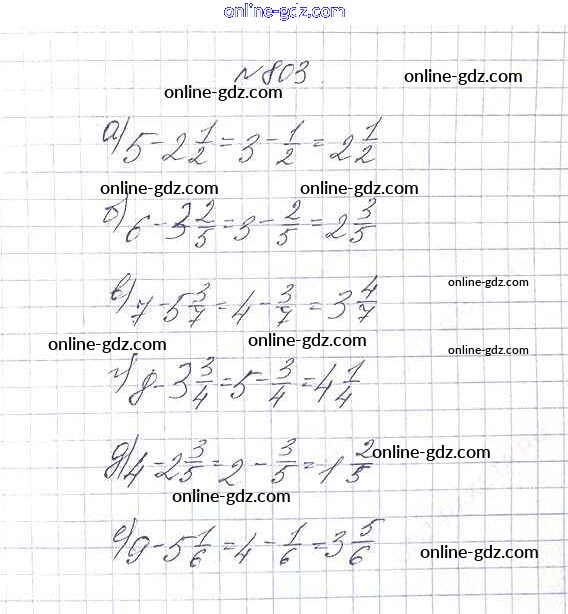 online-gdz.com
№803
online-gdz.com online-gdz.com
а) 5 - 2 1/2 = 3 - 1/2 = 2 1/2
online-gdz.com online-gdz.com
б) 6 - 3 2/5 = 3 - 2/5 = 2 3/5
online-gdz.com
в) 7 - 5 3/7 = 4 - 3/7 = 3 4/7
online-gdz.com online-gdz.com online-gdz.com
г) 8 - 3 3/4 = 5 - 3/4 = 4 1/4
online-gdz.com
д) 4 - 2 3/5 = 2 - 3/5 = 1 2/5
online-gdz.com
е) 9 - 5 1/6 = 4 - 1/6 = 3 5/6
online-gdz.com